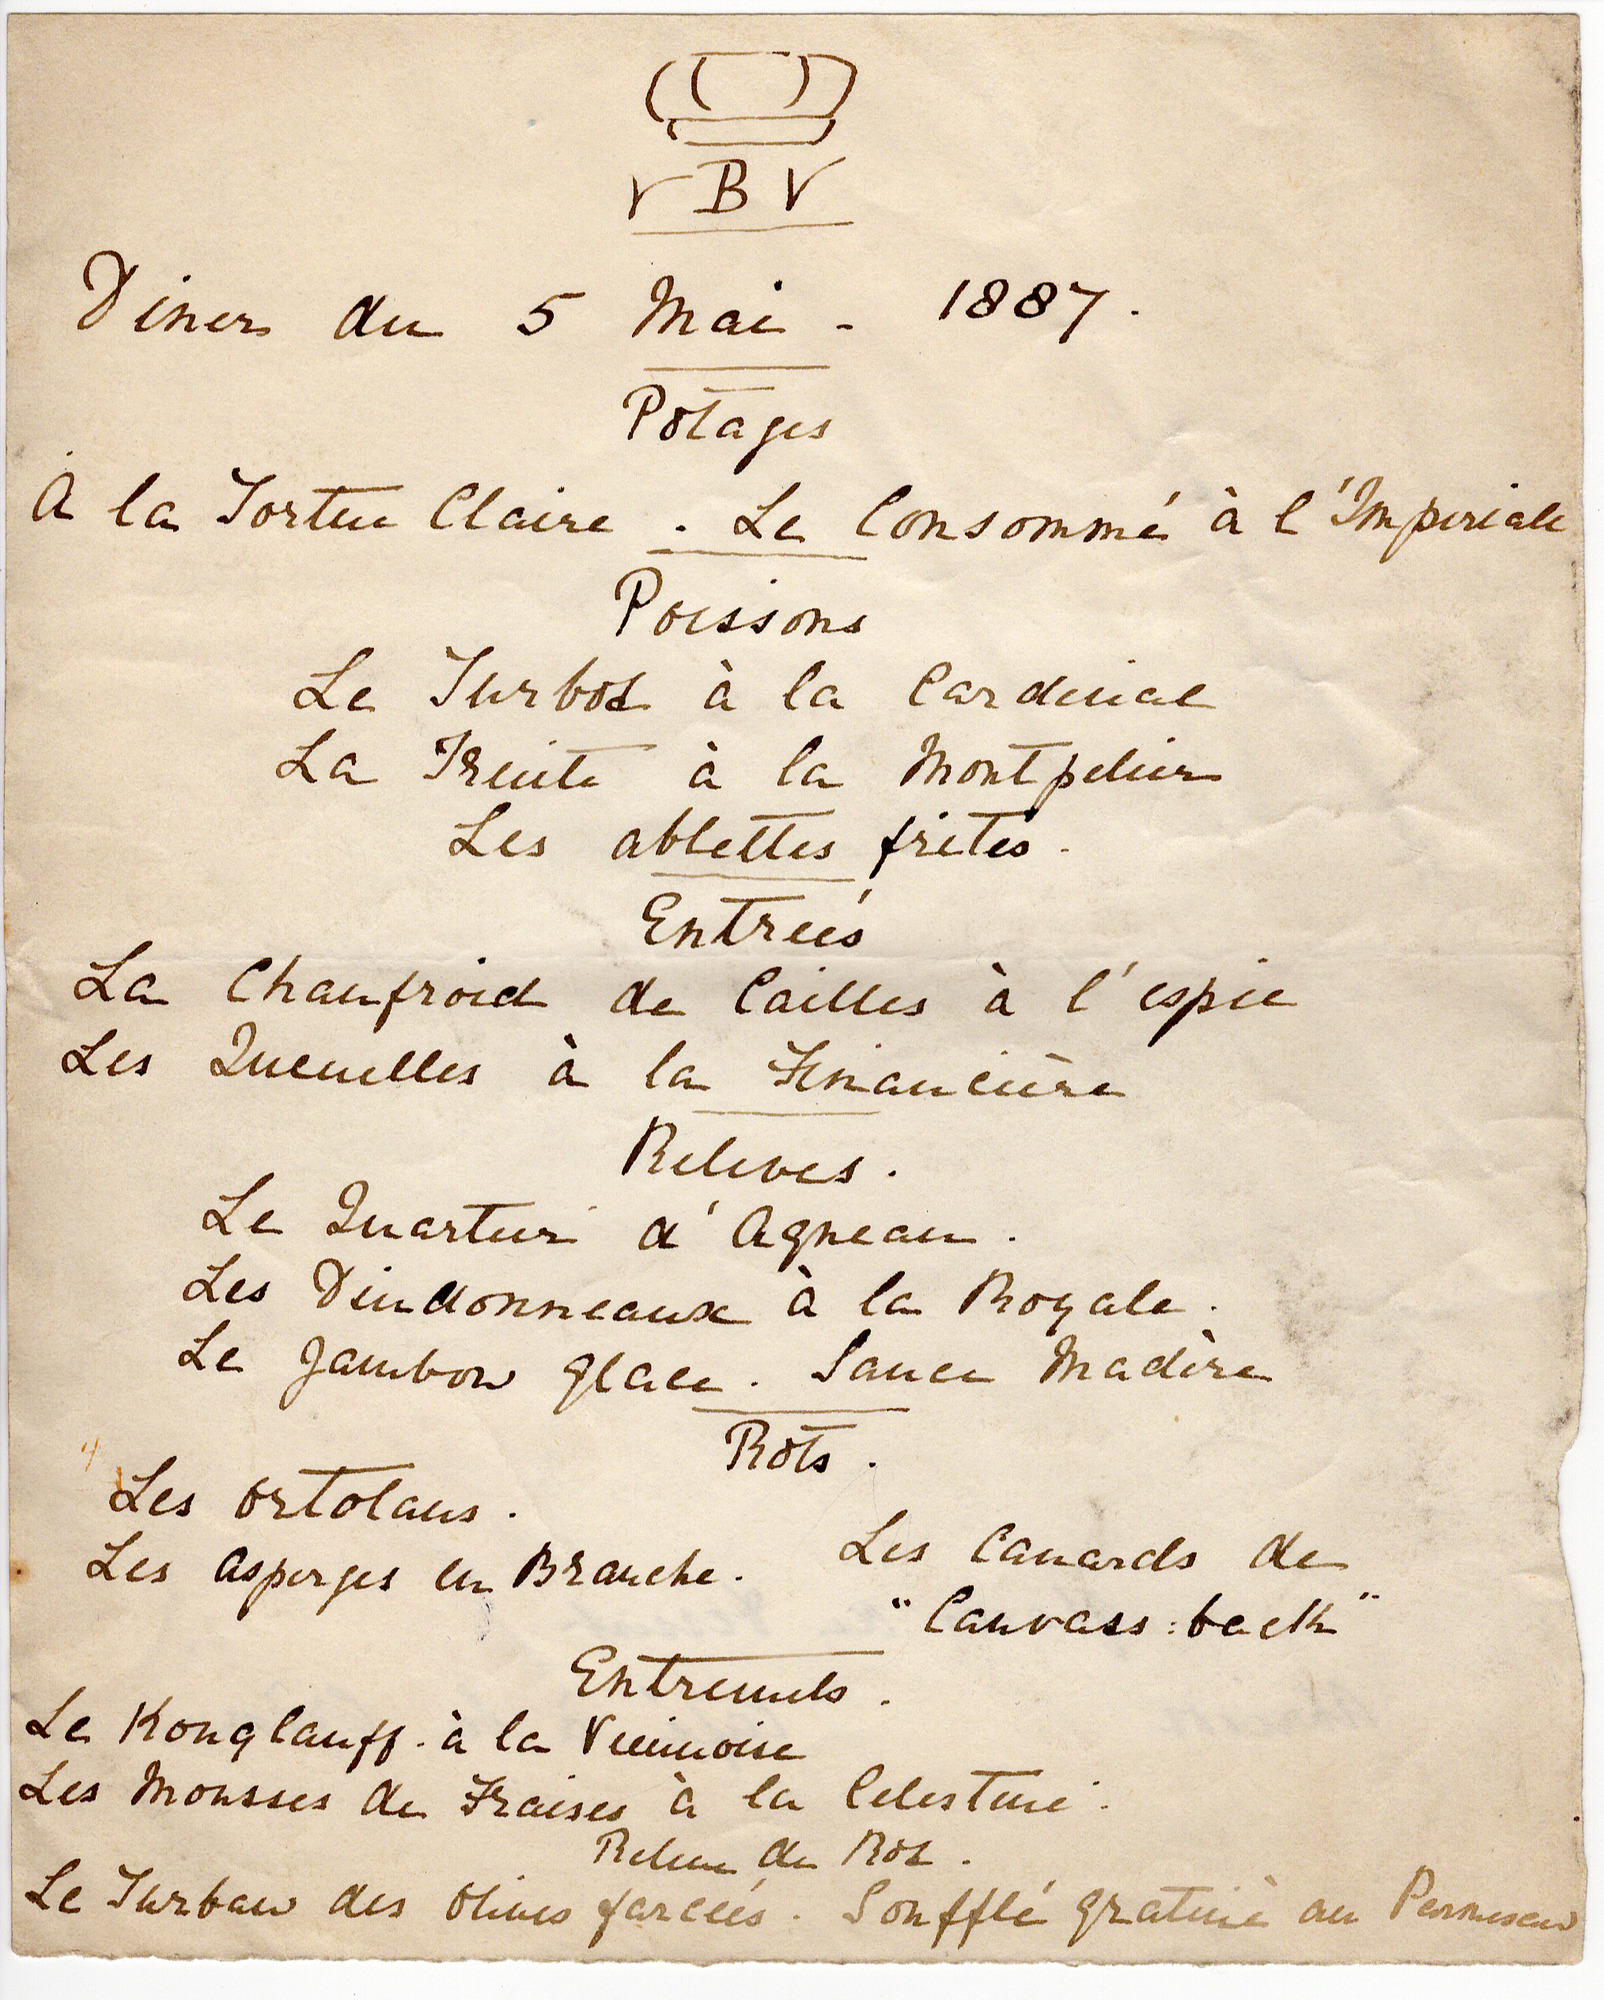 V B V
Diner du 5 Mai - 1887.
Potages
A la Tortue Claire . Le Consommé à l'Imperiale
Poissons
Le Turbot à la Cardinal
La Truite à la Montpelier
Les ablettes frites.
Entreés
La Chaufroid de Cailles à l'espic
Les Quenelles à la Financière
Releves.
Le Quartier d'Agneau.
Les Dindonneaux à la Royale.
Le Jambon glace. Sauce Madère
Rôts.
Les Ortolans.
Les Asperges en Branche.
Les Canards de
"Canvass:back"
Entremets.
Le Kouglauff. à la Viennoise
Les Mousses de Fraises à la Celestine.
Releve de Rot.
Le Turban des Olives farcies. Soufflé gratiné au Parmesan